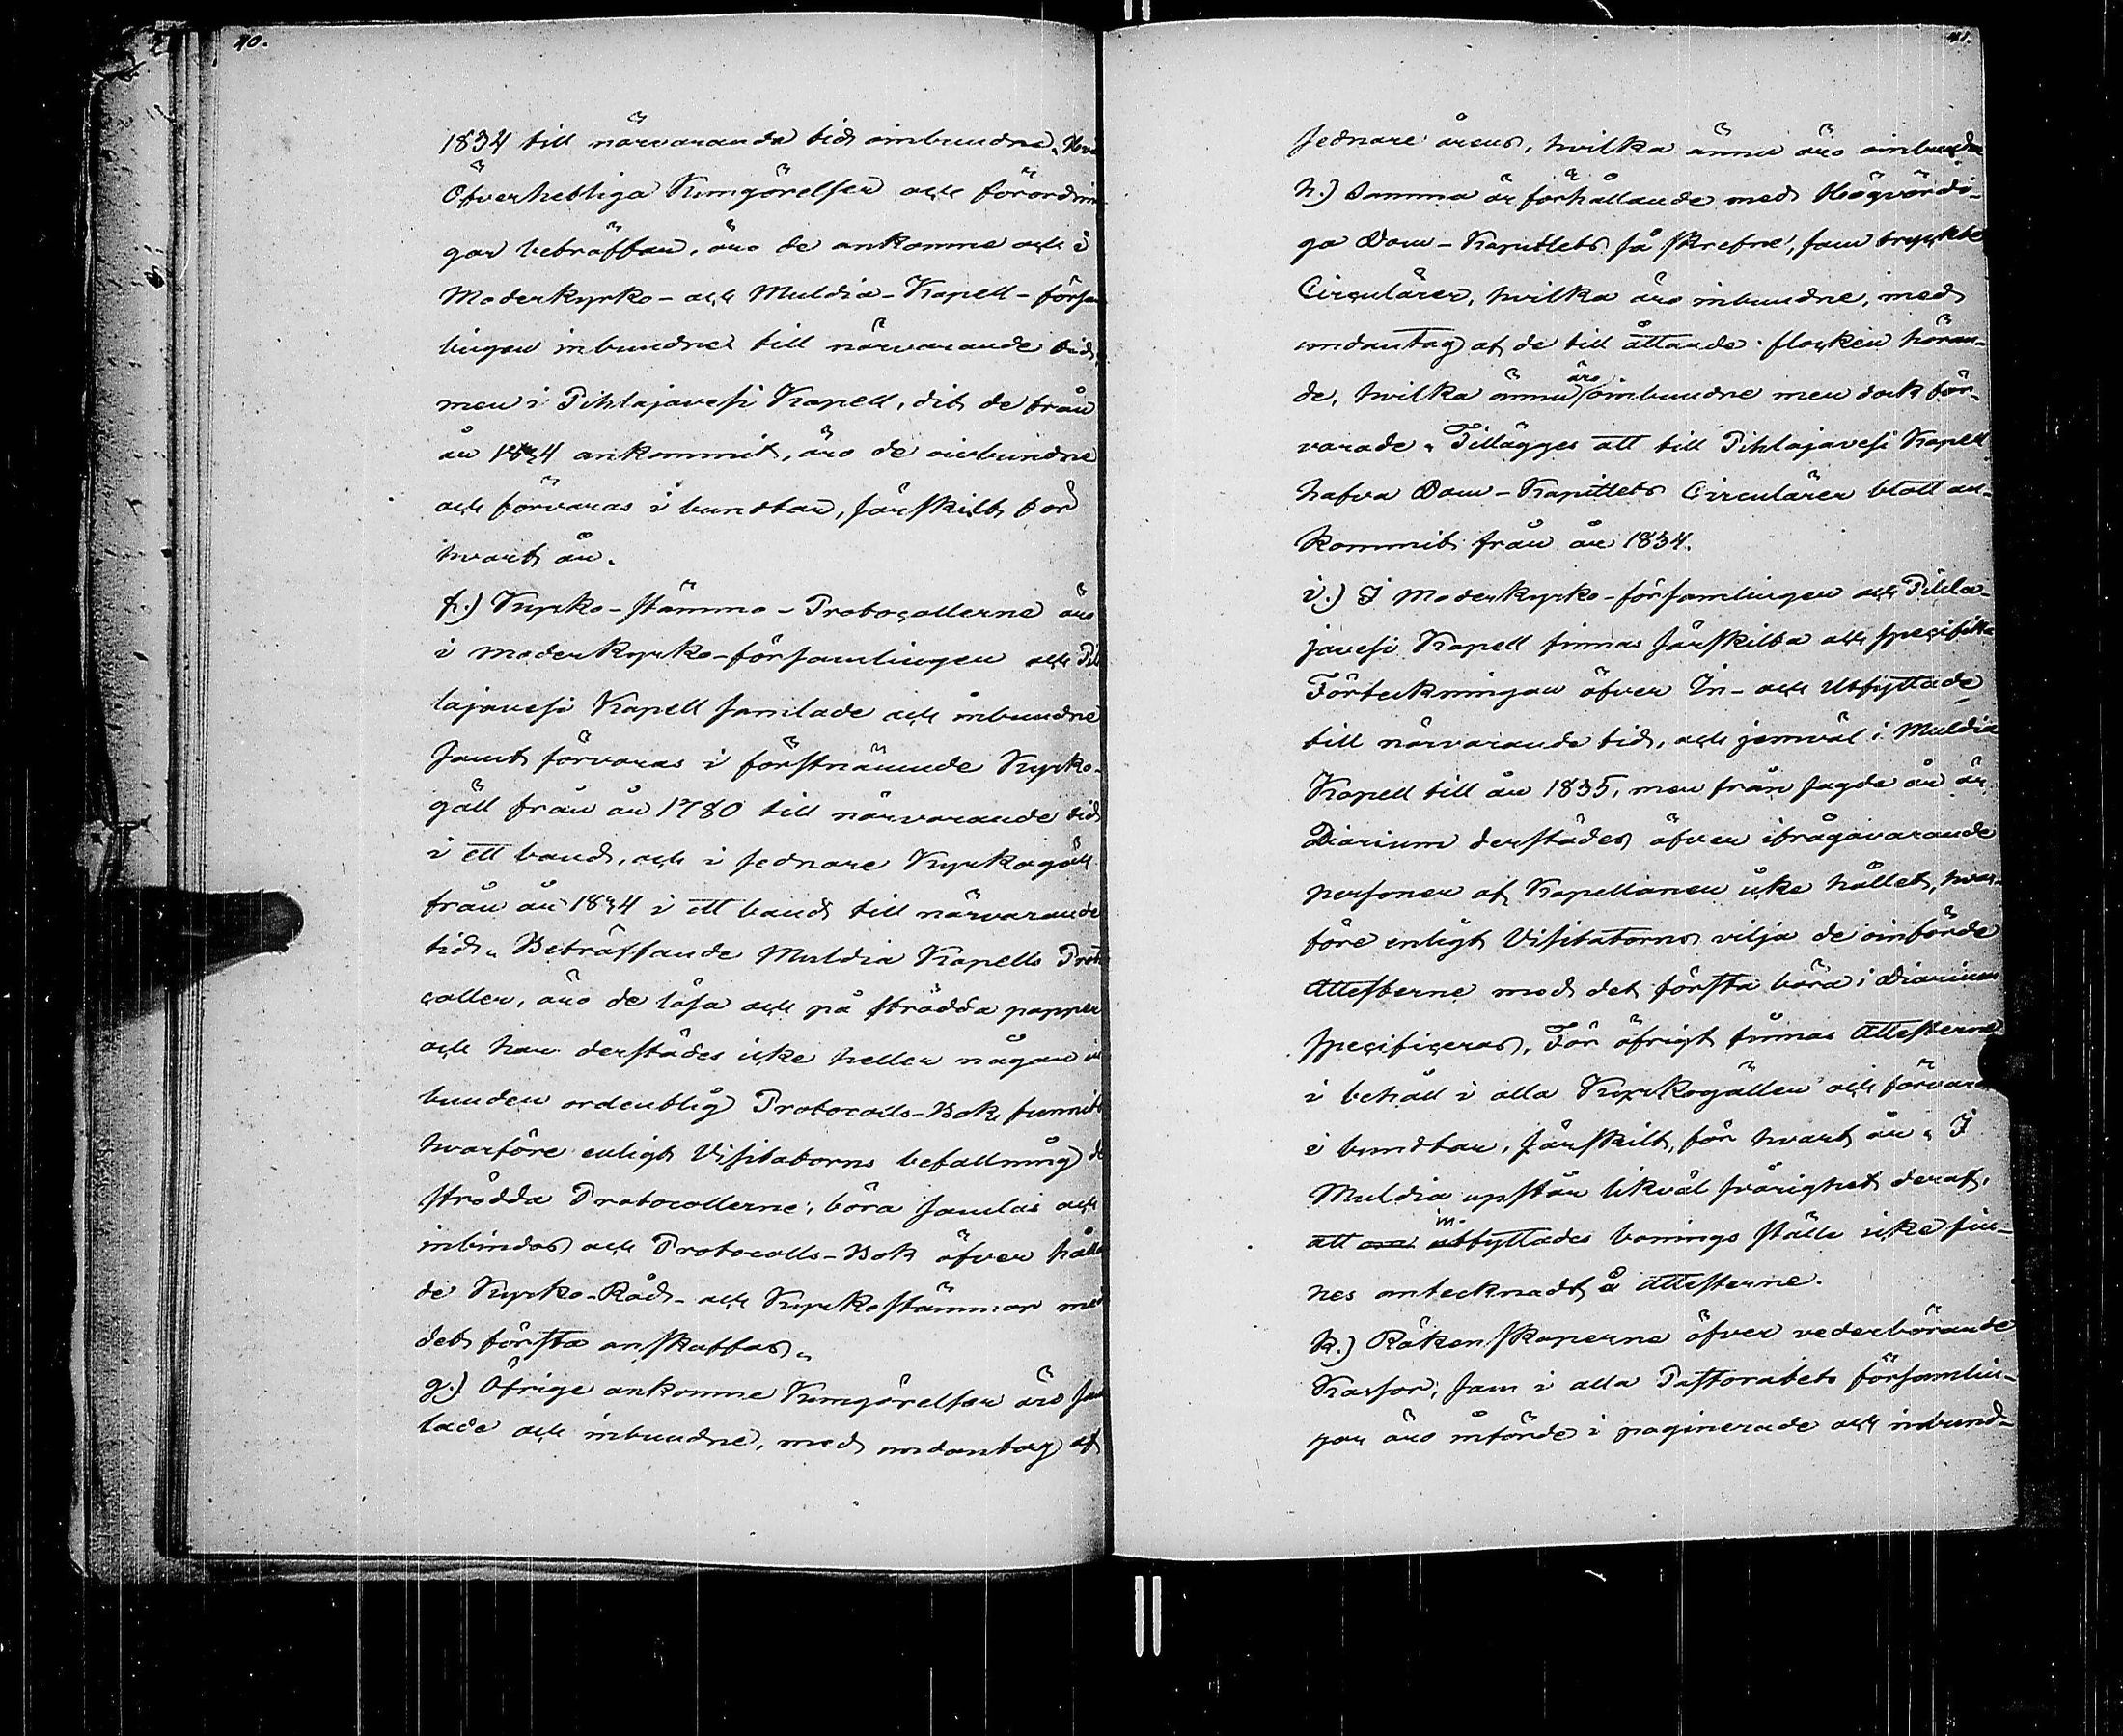 40.
1834 till närvarande tid oinbundne. Hvad
Öfverhetliga Kungörelser och förordnin-
gar beträffar, äro de ankomne och i
Moderkyrko- och Muldia-Kapell-försam
lingen inbundne till närvarande tid,
men i Pihlajavesi Kapell, dit de från
år 1834 ankommit, äro de oinbundne
och förvaras i bundtar, särskilt för
hvart år.
f.) Kyrko-stämmo-Protocollerne äro
i moderkyrko-församlingen och Pih
lajavesi Kapell samlade och inbundne
samt förvaras i förstnämnde Kyrko-
gäll från år 1780 till närvarande tid
i ett band, och i sednare Kyrkogäll
från år 1834 i ett band till närvarande
tid. Beträffande Muldia Kapells Proto
coller, äro de lösa och på strödda papper
och har derstädes icke heller någon in
bunden ordentlig Protocolls-Bok funnits
hvarföre enligt Visitatorns befallning de
strödda Protocollerne, böra samlas och
inbindas och Protocolls-Bok öfver håll
de Kyrko-Råd- och Kyrkostämmor med
det första anskaffas.
g.) Öfrige ankomne Kungörelser äro sam
lade och inbundne, med undantag af
41.
sednare årens, hvilka ännu äro oinbundne
h.) Samma är förhållande med Högvördi-
ga Dom-Kapitlets så skrefne, som tryckte
Circulärer, hvilka äro inbundne, med
undantag af de till åttande flocken höran-
de, hvilka ännu äro oinbundne men dock för-
varade. Tillägges att till Pihlajavesi Kapell
hafva Dom-Kapitlets Circulärer blott an-
kommit från år 1834.
i.) I Moderkyrko-församlingen och Pihla-
javesi Kapell finnas särskilta och specifika
Förteckningar öfver In- och Utflyttade
till närvarande tid, och jemväl i Muldia
Kapell till år 1835, men från sagde år är
Diarium derstädes öfver ifrågavarande
personer af Kapellanen icke hållet, hvar-
före enligt Visitatorns vilja de oinförde
Attesterne med det första böra i Diarium
specificeras. För öfrigt finnas Attesterne
i behåll i alla Kyrkogällen och förvaras
i bundtar, särskilt, för hvart år. I
Muldia uppstår likväl svårighet deraf,
att inflyttades bonings ställe icke fin-
nes antecknadt å Attesterne.
k.) Räkenskaperne öfver vederbörande
Kassor, som i alla Pastoratets församlin-
gar äro införde i paginerade och inbund-